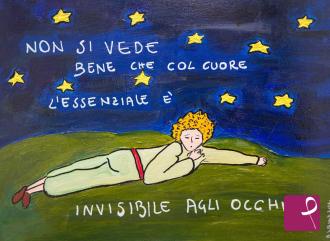 NON SI VEDE
BENE CHE COL CUORE
L'ESSENZIALE È
INVISIBILE AGLI OCCHI